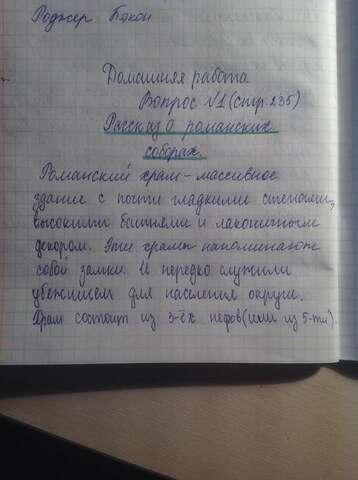 Роджер Бэкон
Домашняя работа
Вопрос №1 (стр. 235)
Рассказ о романских
соборах.
Романский храм - массивное
здание с почти гладкими стенами,
высокими башнями и лаконичным
декором. Эти храмы напоминают
собой замки. И нередко служили
убежищем для населения округи.
Храм состоит из 3-ёх нефов (или из 5-ти).